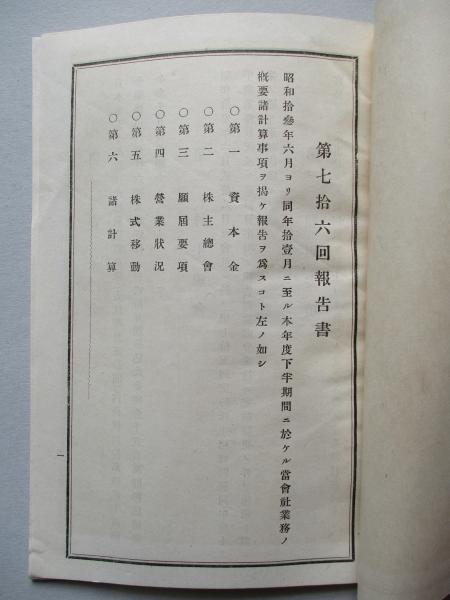 第七拾六回報告書
昭和拾參年六月ヨリ同年拾壹月ニ至ル本年度下半期間ニ於ケル當會社業務ノ
槪要諸計算事項ヲ揭ケ報告ヲ爲スコト左ノ如シ
〇第一 資本金
〇第二 株主總會
〇第三 願屆要項
〇第四 營業狀況
〇第五 株式移動
〇第六 諸計算
一